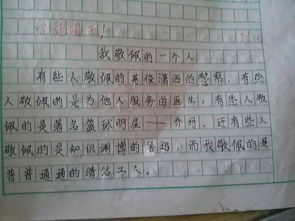 我敬佩的一个人
有些人敬佩的英俊潇洒的警察，有些
人敬佩的是为他人服务的医生，有些人敬
佩的是著名篮球明星——乔丹，还有些人
敬佩的是知识渊博的爸爸，而我敬佩的是
普普通通的清洁工人。